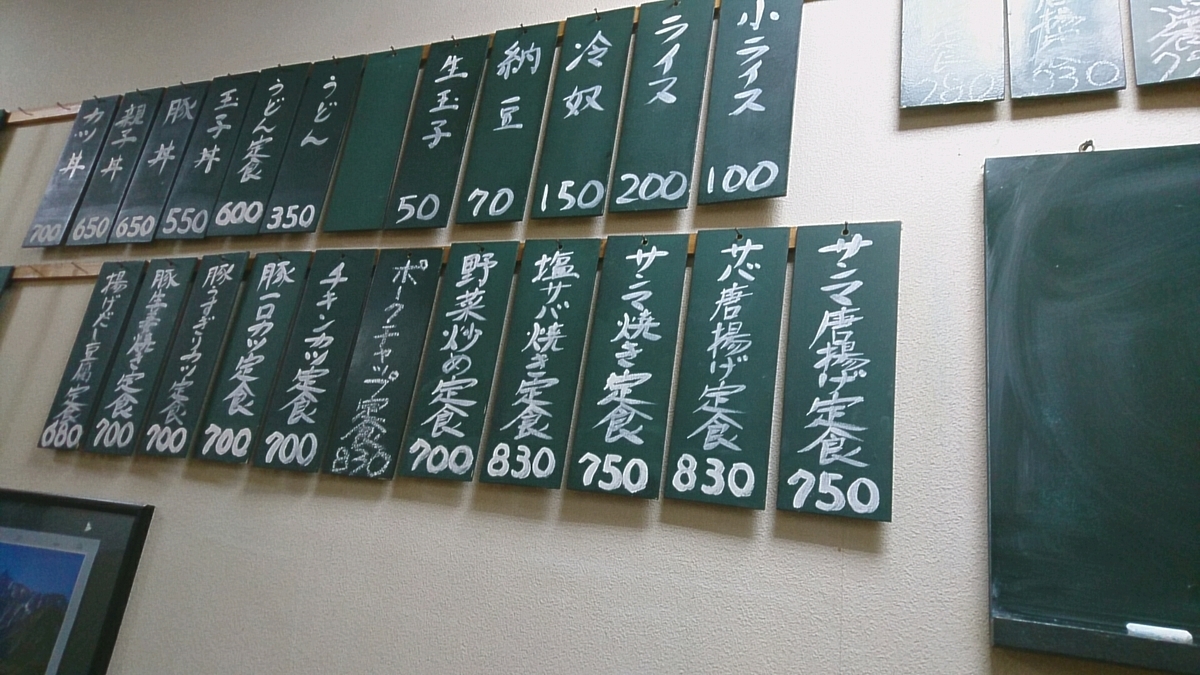 小ライス 100
ライス 200
冷奴 150
納豆 70
生玉子 50
うどん 350
うどん定食 600
玉子丼 550
豚丼 650
親子丼 650
カツ丼 700
サンマ唐揚げ定食 750
サバ唐揚げ定食 830
サンマ焼き定食 750
塩サバ焼き定食 830
野菜炒め定食 700
ポークチャップ定食 830
チキンカツ定食 700
豚一口カツ定食 700
豚すぎりカツ定食 700
豚生姜焼き定食 700
揚げ出し豆腐定食 680
唐揚 830
780